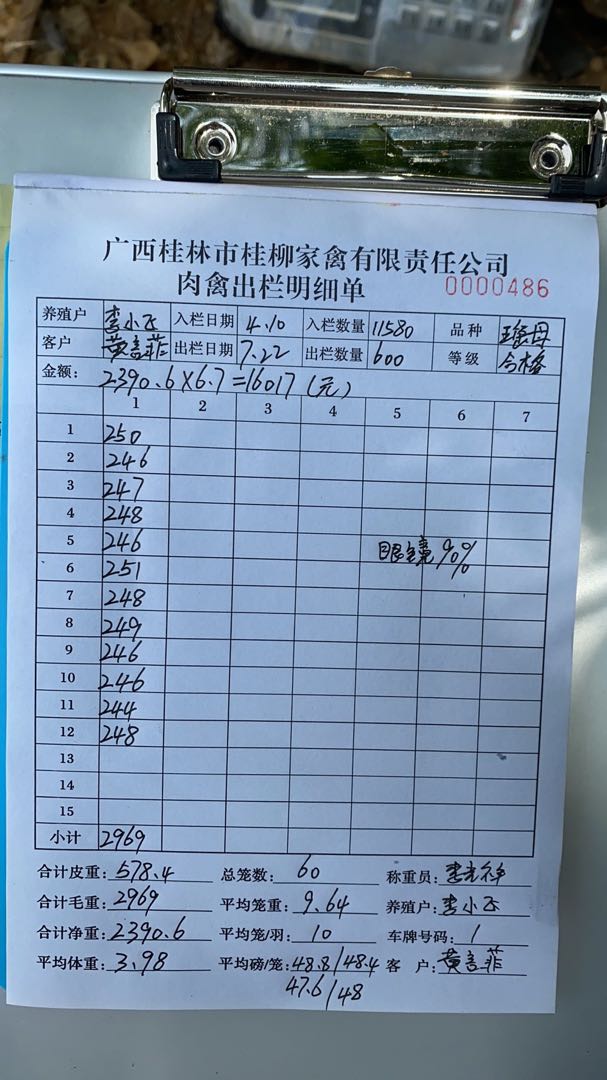 广西桂林市桂柳家禽有限责任公司
肉禽出栏明细单 0000486
养殖户 李小飞 入栏日期 4.10 入栏数量 11580 品种
客户 黄言菲 出栏日期 7.22 出栏数量 600 等级 合格
金额: 2390.6×6.7=16017(元)
1 2 3 4 5 6 7
1 250
2 246
3 247
4 248
5 246 眼镜90%
6 251
7 248
8 249
9 246
10 246
11 244
12 248
13
14
15
小计 2969
合计皮重: 578.4 总笼数: 60 称重员:
合计毛重: 2969 平均笼重: 9.64 养殖户: 李小飞
合计净重: 2390.6 平均笼/羽: 10 车牌号码: 1
平均体重: 3.98 平均磅/笼: 48.8/48.4 客 户: 黄言菲
47.6/48